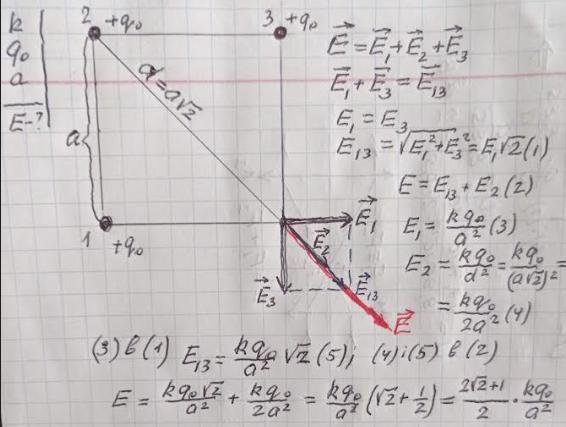 k
q₀
a
E-?
2 +q₀
3 +q₀
d=a√2
a
1 +q₀
E⃗₁
E⃗₂
E⃗₃
E⃗₁₃
E⃗
E⃗=E⃗₁+E⃗₂+E⃗₃
E⃗₁+E⃗₃=E⃗₁₃
E₁=E₃
E₁₃=√(E₁²+E₃²)=E₁√2 (1)
E=E₁₃+E₂ (2)
E₁=kq₀/a² (3)
E₂=kq₀/d²=kq₀/(a√2)²=
=kq₀/2a² (4)
(3) в (1) E₁₃=kq₀/a² √2 (5); (4) i (5) в (2)
E=kq₀√2/a²+kq₀/2a²=kq₀/a²(√2+1/2)=(2√2+1)/2·kq₀/a²